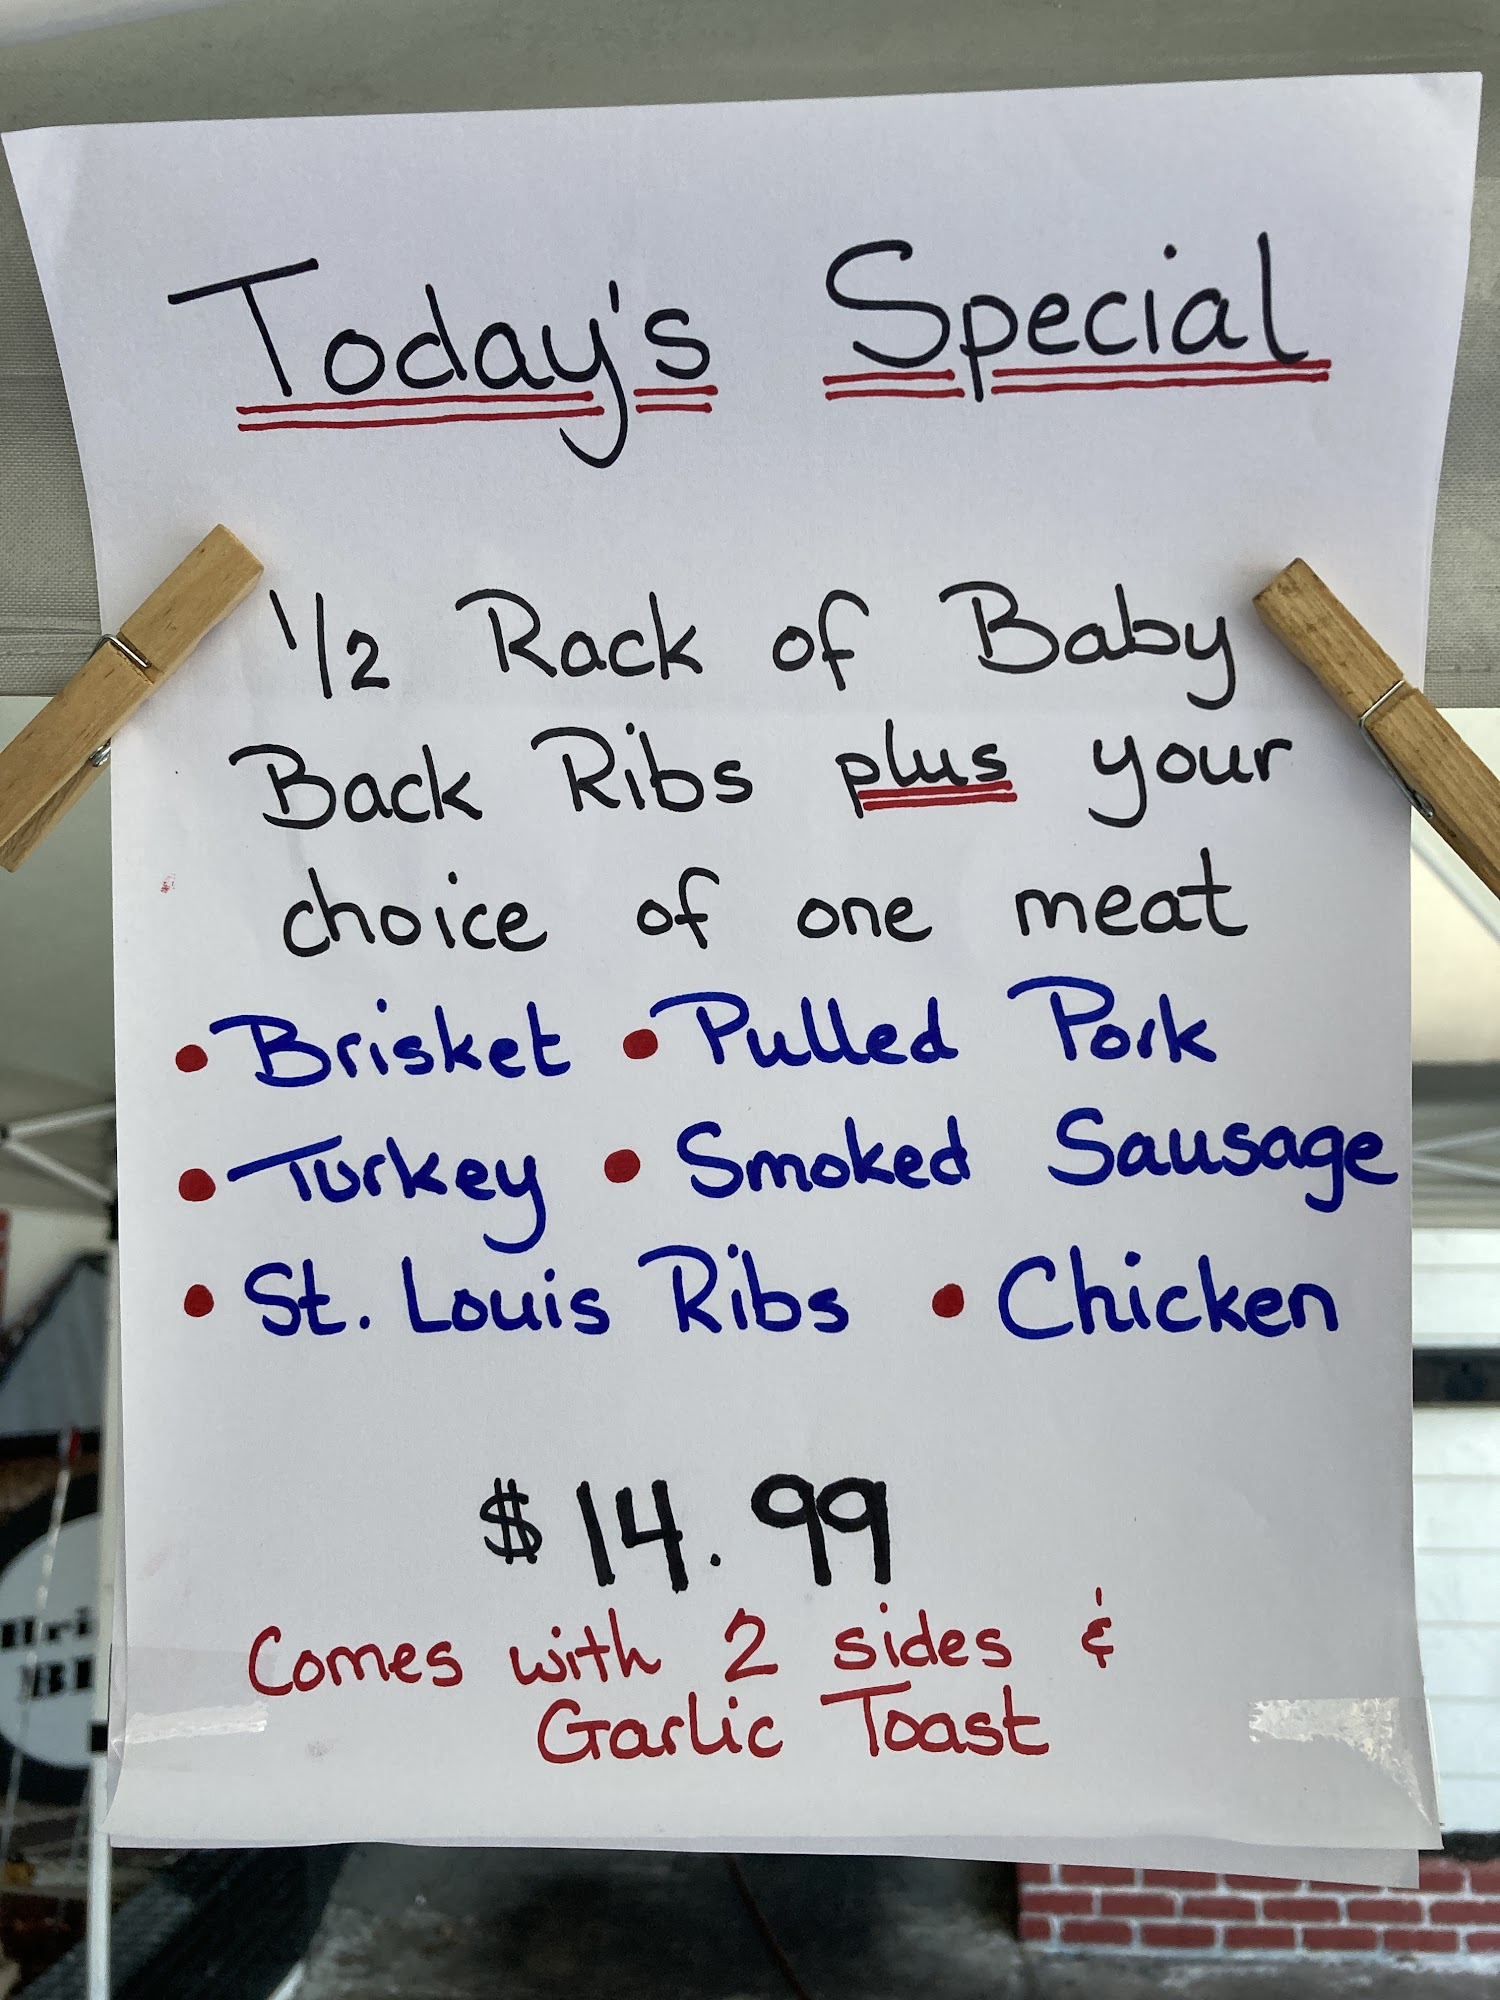 Today's Special
1/2 Rack of Baby
Back Ribs plus your
choice of one meat
• Brisket • Pulled Pork
• Turkey • Smoked Sausage
• St. Louis Ribs • Chicken
$14.99
Comes with 2 sides &
Garlic Toast